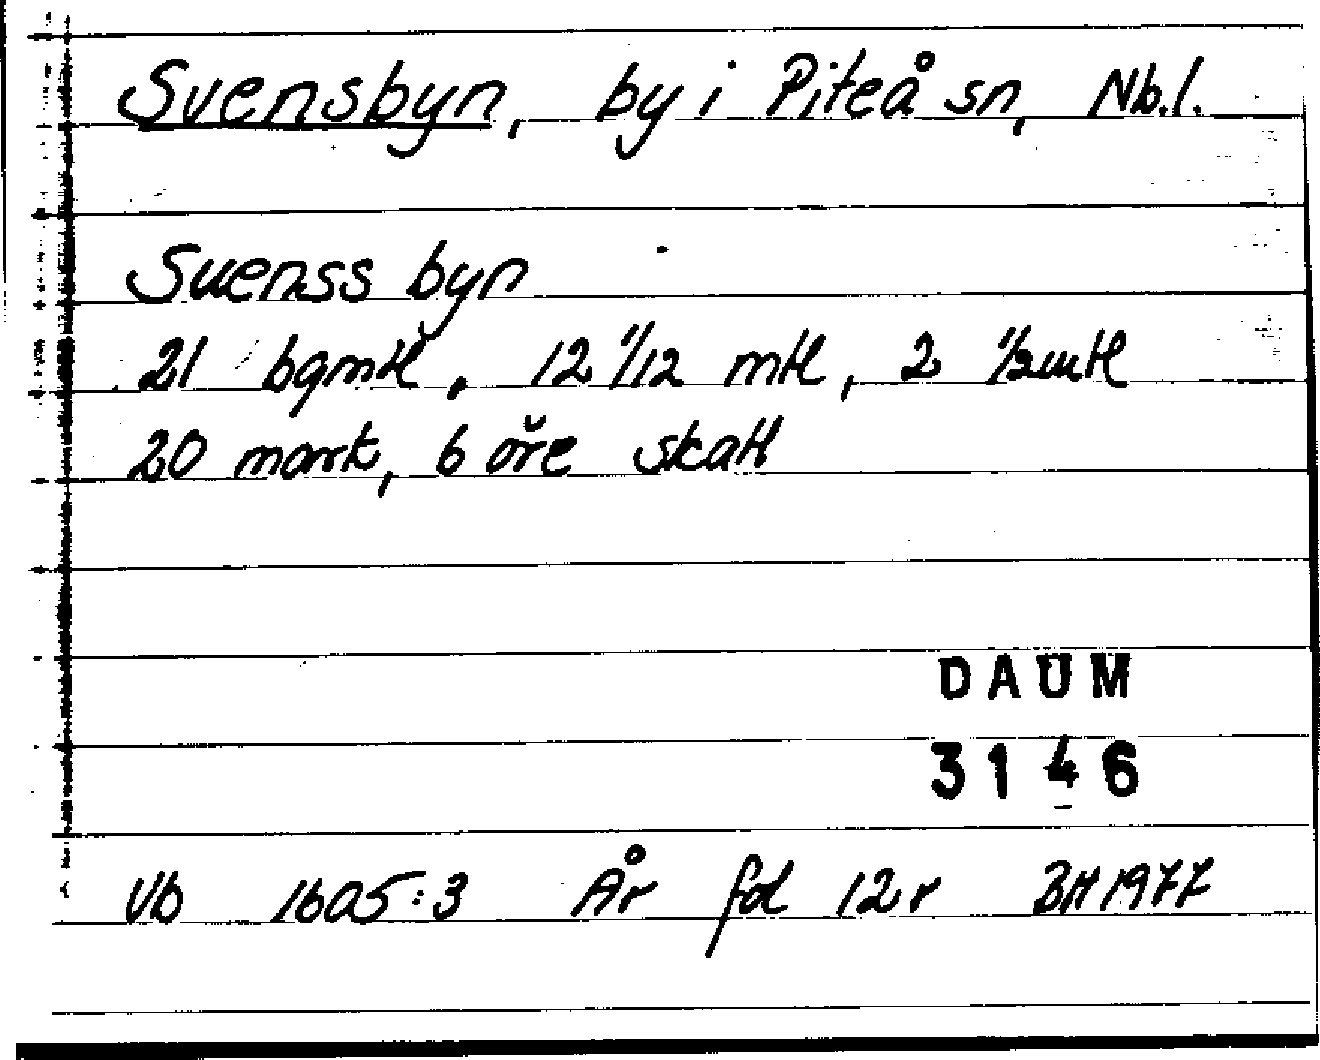 Svensbyn, by i Piteå sn, Nb.l.
Suenss byn
21 bgmtl, 12 1/12 mtl, 2 1/2 mtl
20 mark, 6 öre skatt
DAUM
3146
Vb 1605:3 År fol 12r BH 1977